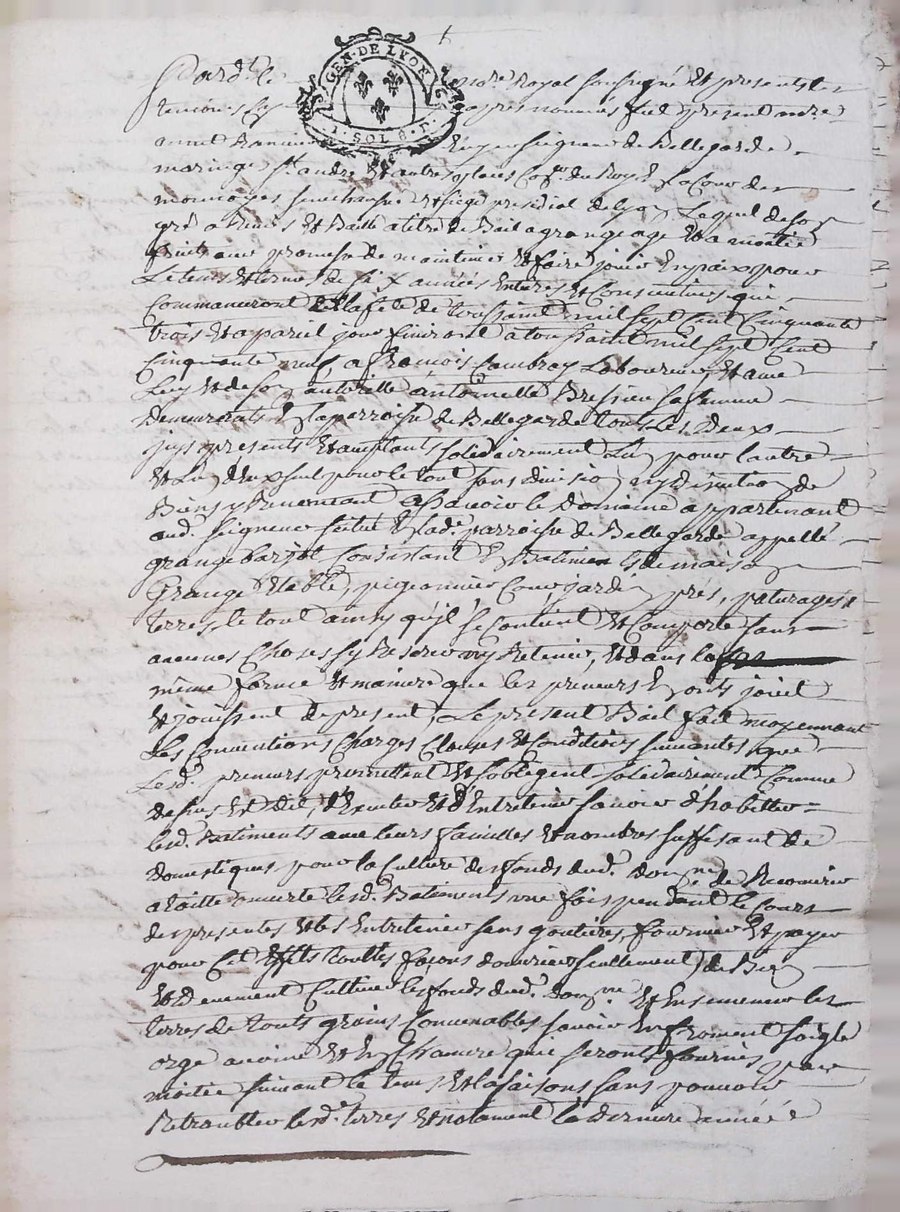 GEN · DE LYON
1 · SOL 8 · D ·
Pard.t le no.re Royal soussigné et presents les
temoins cy apres nommés fut present m.re
seigneur de Bellegarde
maringe St. andré et autres places Co.er du Roy en la Cour des
monnoyes senechaussée et siege presidial de Lyon Lequel de son
gré a Remis et Baillé a titre de Bail a grangeage et a moitié
fruits avec promesse de maintenir et faire jouir en paix pour
Le tems et terme de six années entieres et consecutives qui
Commanceront a la fete de toussaint mil sept cent Cinquante
trois et a pareil jour finiront a toussaint mil sept cent
Cinquante neuf, a françois laboureur et avec
Luy et de son autorité antoinette Bressieu sa femme
Demeurants en la parroisse de Bellegarde tous Les Deux
icy presents et acceptants solidairement L'un pour l'autre
et L'un d'eux seul pour le tout sans division ny discution de
Biens y Renoncant a Sçavoir le Domaine appartenant
aud. seigneur scitué en lad. parroisse de Bellegarde appellé
grange barjot Consistant en Batiments de maison
Grange Etable, pigeonnier Cour, jardin prés, paturages,
terres, le tout ainsy qu'il se Contient et Comporte sans
aucunes Choses sy Reserver ny Retenir, et dans la
même forme et maniere que les preneurs en ont jouit
et jouissent a present, Le present Bail fait moyennant
Les Conventions Charges Clauses et Conditions suivantes, que
Lesd. preneurs promettent et s'obligent solidairement Comme
dessus est dit, d'Executer et d'Entretenir sçavoir d'habitter
lesd. Batiments avec leurs familles et nombres suffisant de
domestiques pour la Culture des fonds dud. dom.ne de Recouvrir
a taille ouverte lesd. Batiments une fois pendant le cours
des presentes et les Entretenir sans goutieres, fournir et payer
pour Cet Effet touttes façons d'ouvriers seullement, de Bien
et duement Cultiver les fonds dud. dom.ne et Ensemencer les
terres de touts grains Convenables sçavoir En froment seigle
orge avoine et En Chanvre qui seront fournis par
moitié suivant le tems et la saisons sans pouvoir
Retroubler lesd. terres et notament la derniere année